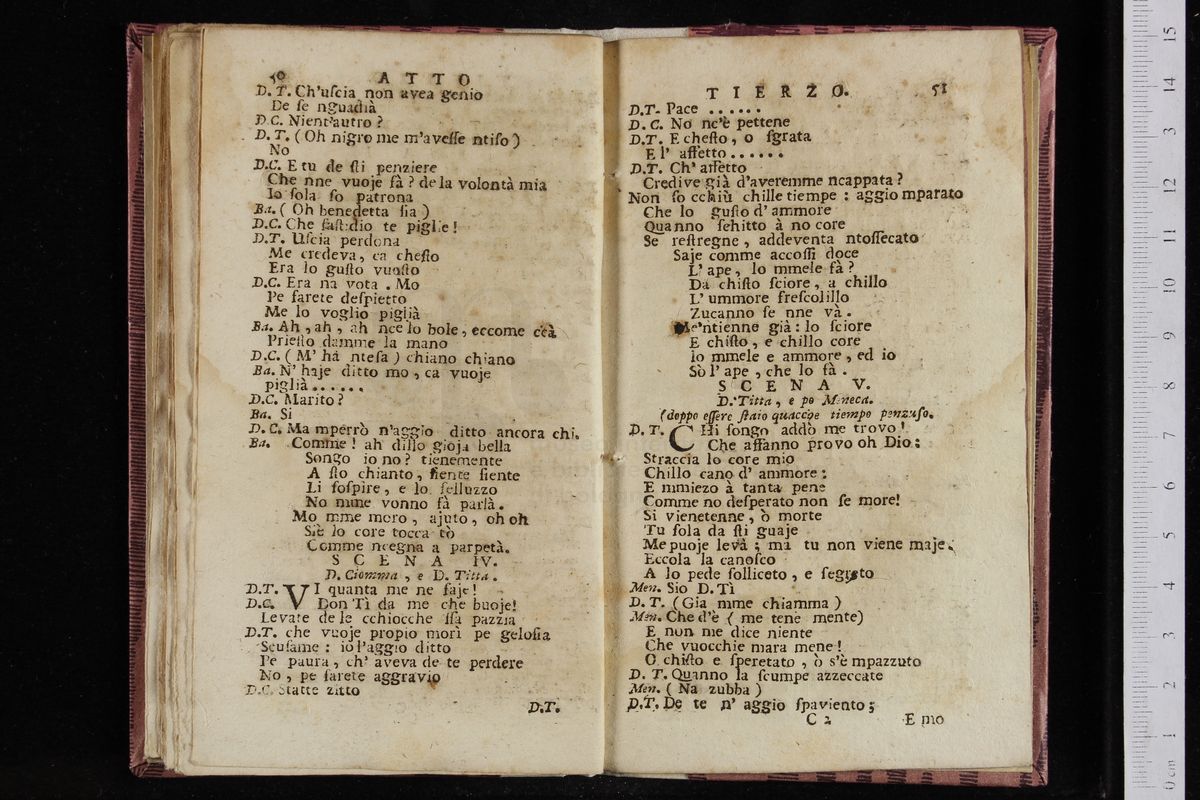 50 ATTO
D. T. Ch'uſcia non avea genio
De ſe nguadià
D.C. Nient'autro?
D. T. (Oh nigro me m'aveſſe ntiſo)
No
D.C. E tu de ſti penziere
Che nne vuoje fà? de la volontà mia
Io ſola ſo patrona
Ba. (Oh benedetta ſia)
D.C. Che faſtidio te piglie!
D.T. Uſcia perdona
Me credeva, ca cheſto
Era lo guſto vuoſto
D.C. Era na vota. Mo
Pe farete deſpietto
Me lo voglio piglià
Ba. Ah, ah, ah nce lo bole, eccome ccà
Prieſto damme la mano
D.C. (M' ha nteſa) chiano chiano
Ba. N' haje ditto mo, ca vuoje
piglià......
D.C. Marito?
Ba. Si
D. C. Ma mperrò n'aggio ditto ancora chi.
Ba. Comme! ah dillo gioja bella
Songo io no? tienemente
A ſto chianto, ſiente ſiente
Li ſoſpire, e lo ſelluzzo
No mme vonno fà parlà.
Mo mme moro, ajuto, oh oh
Siè lo core tocca tò
Comme ncegna a parpetà.
SCENA IV.
D. Ciomma, e D. Titta.
D.T. VI quanta me ne faje!
D.C. Don Tì da me che buoje!
Levate de le cchiocche ſſa pazzia
D.T. che vuoje propio morì pe geloſia
Scuſame: io l'aggio ditto
Pe paura, ch' aveva de te perdere
No, pe farete aggravio
D.C. Statte zitto
D.T.
TIERZO. 51
D.T. Pace......
D. C. No nc'è pettene
D.T. E cheſto, o ſgrata
E l' affetto......
D.T. Ch' affetto
Credive già d'averemme ncappata?
Non ſo cchiù chille tiempe: aggio mparato
Che lo guſto d' ammore
Quanno ſehitto à no core
Se reſtregne, addeventa ntoſſecato
Saje comme accoſſi doce
L' ape, lo mmele fà?
Da chiſto ſciore, a chillo
L' ummore freſcolillo
Zucanno ſe nne và.
Me'ntienne già: lo ſciore
E chiſto, e chillo core
lo mmele e ammore, ed io
Sò l' ape, che lo fà.
SCENA V.
D. Titta, e po Meneca.
(doppo eſſere ſtato quacche tiempo penzuſo.
D. T. CHi ſongo addò me trovo!
Che affanno provo oh Dio:
Straccia lo core mio
Chillo cano d' ammore:
E mmiezo à tanta pene
Comme no deſperato non ſe more!
Si vienetenne, ò morte
Tu ſola da ſti guaje
Me puoje levà; ma tu non viene maje.
Eccola la canoſco
A lo pede ſolliceto, e ſegreto
Men. Sio D. Tì
D. T. (Gia mme chiamma)
Men. Che d'è (me tene mente)
E non me dice niente
Che vuocchie mara mene!
O chiſto e ſperetato, ò s'è mpazzuto
D. T. Quanno la ſcumpe azzeccate
Men. (Na zubba)
D.T. De te n' aggio ſpaviento;
C 2 E mo